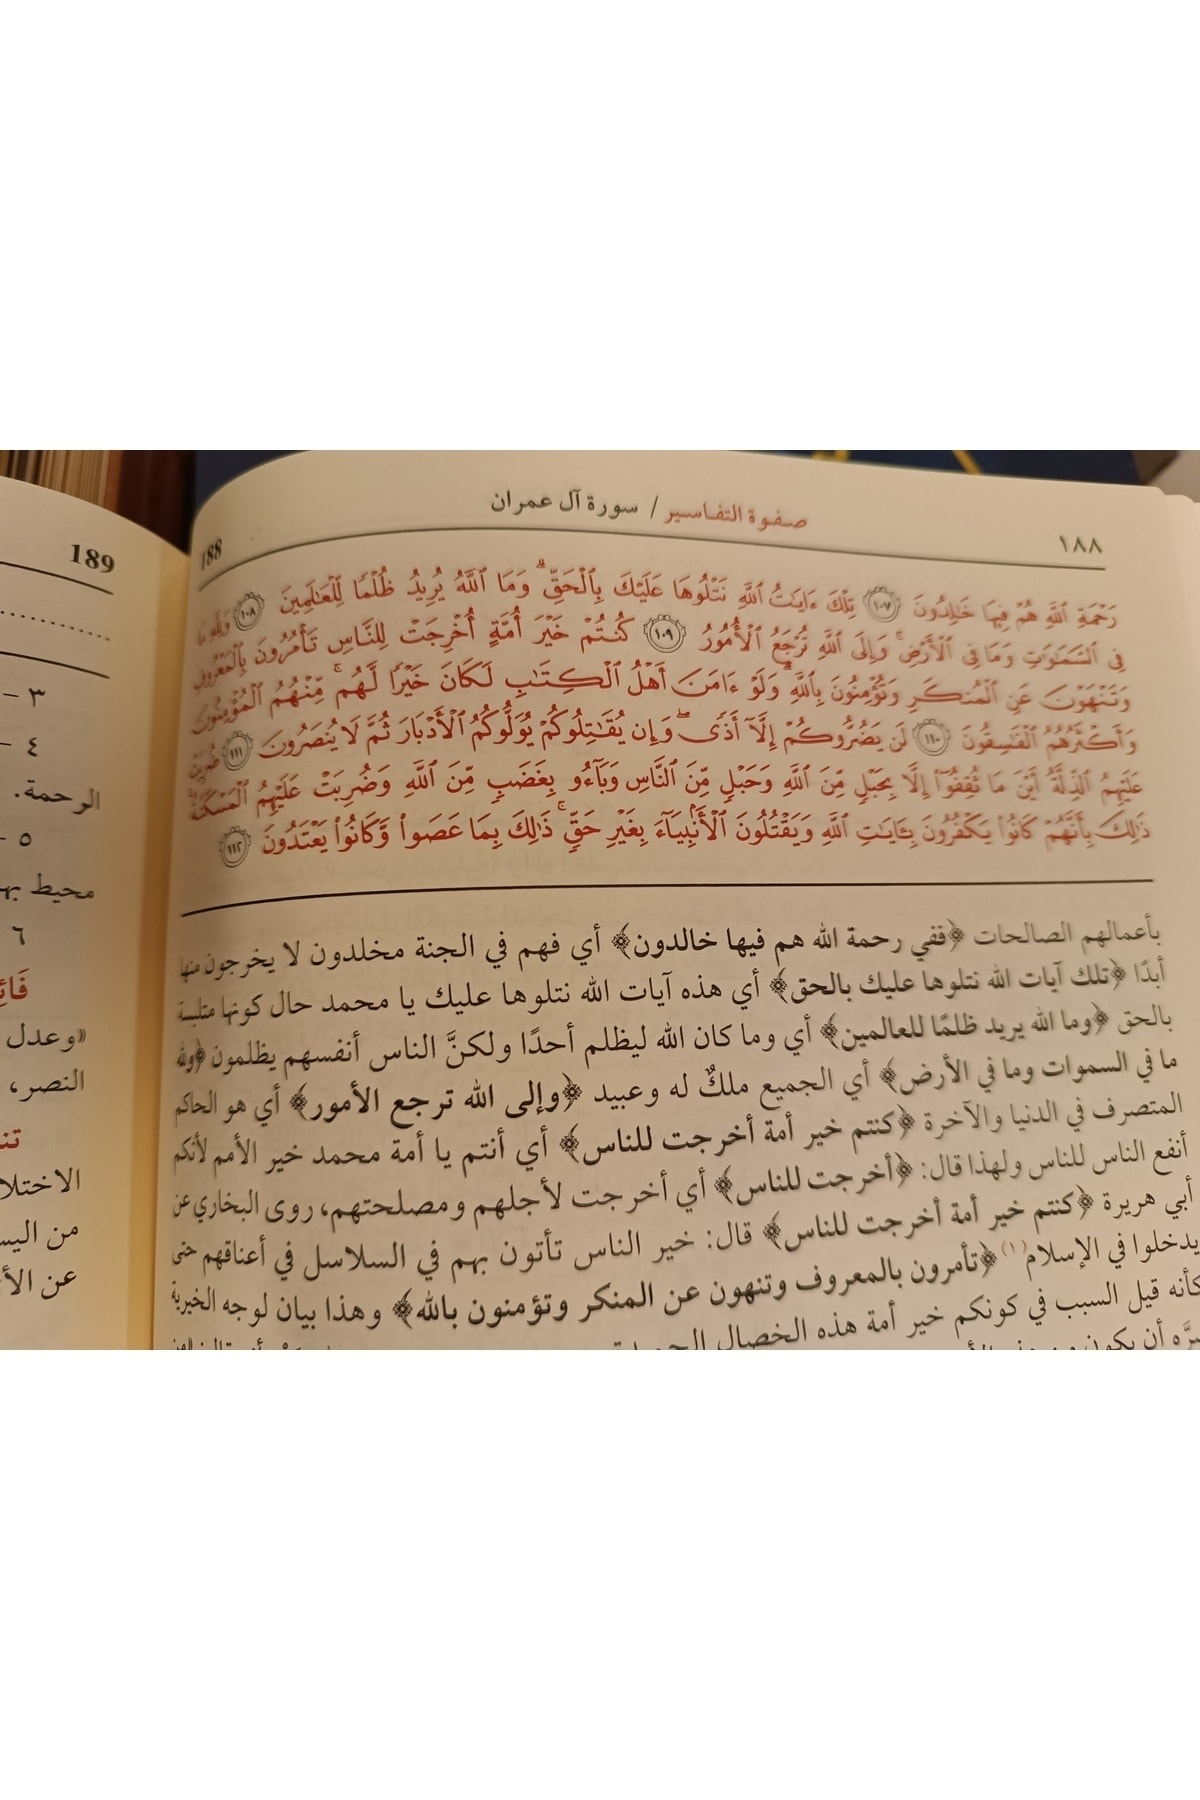 ١٨٨
صفوة التفاسير / سورة آل عمران
188
رَحْمَةِ ٱللَّهِ هُمْ فِيهَا خَٰلِدُونَ ١٠٧ تِلْكَ ءَايَٰتُ ٱللَّهِ نَتْلُوهَا عَلَيْكَ بِٱلْحَقِّ ۗ وَمَا ٱللَّهُ يُرِيدُ ظُلْمًا لِّلْعَٰلَمِينَ ١٠٨ وَلِلَّهِ مَا
فِى ٱلسَّمَٰوَٰتِ وَمَا فِى ٱلْأَرْضِ ۚ وَإِلَى ٱللَّهِ تُرْجَعُ ٱلْأُمُورُ ١٠٩ كُنتُمْ خَيْرَ أُمَّةٍ أُخْرِجَتْ لِلنَّاسِ تَأْمُرُونَ بِٱلْمَعْرُوفِ
وَتَنْهَوْنَ عَنِ ٱلْمُنكَرِ وَتُؤْمِنُونَ بِٱللَّهِ ۗ وَلَوْ ءَامَنَ أَهْلُ ٱلْكِتَٰبِ لَكَانَ خَيْرًا لَّهُم ۚ مِّنْهُمُ ٱلْمُؤْمِنُونَ
وَأَكْثَرُهُمُ ٱلْفَٰسِقُونَ ١١٠ لَن يَضُرُّوكُمْ إِلَّآ أَذًى ۖ وَإِن يُقَٰتِلُوكُمْ يُوَلُّوكُمُ ٱلْأَدْبَارَ ثُمَّ لَا يُنصَرُونَ ١١١ ضُرِبَتْ
عَلَيْهِمُ ٱلذِّلَّةُ أَيْنَ مَا ثُقِفُوٓا۟ إِلَّا بِحَبْلٍ مِّنَ ٱللَّهِ وَحَبْلٍ مِّنَ ٱلنَّاسِ وَبَآءُو بِغَضَبٍ مِّنَ ٱللَّهِ وَضُرِبَتْ عَلَيْهِمُ ٱلْمَسْكَنَةُ ۚ
ذَٰلِكَ بِأَنَّهُمْ كَانُوا۟ يَكْفُرُونَ بِـَٔايَٰتِ ٱللَّهِ وَيَقْتُلُونَ ٱلْأَنۢبِيَآءَ بِغَيْرِ حَقٍّ ۚ ذَٰلِكَ بِمَا عَصَوا۟ وَّكَانُوا۟ يَعْتَدُونَ ١١٢
بأعمالهم الصالحات ﴿ففي رحمة الله هم فيها خالدون﴾ أي فهم في الجنة مخلدون لا يخرجون منها
أبدًا ﴿تلك آيات الله نتلوها عليك بالحق﴾ أي هذه آيات الله نتلوها عليك يا محمد حال كونها متلبسة
بالحق ﴿وما الله يريد ظلمًا للعالمين﴾ أي وما كان الله ليظلم أحدًا ولكنَّ الناس أنفسهم يظلمون ﴿ولله
ما في السموات وما في الأرض﴾ أي الجميع ملكٌ له وعبيد ﴿وإلى الله ترجع الأمور﴾ أي هو الحاكم
المتصرف في الدنيا والآخرة ﴿كنتم خير أمة أخرجت للناس﴾ أي أنتم يا أمة محمد خير الأمم لأنكم
أنفع الناس للناس ولهذا قال: ﴿أخرجت للناس﴾ أي أخرجت لأجلهم ومصلحتهم، روى البخاري عن
أبي هريرة ﴿كنتم خير أمة أخرجت للناس﴾ قال: خير الناس تأتون بهم في السلاسل في أعناقهم حتى
يدخلوا في الإسلام(١) ﴿تأمرون بالمعروف وتنهون عن المنكر وتؤمنون بالله﴾ وهذا بيان لوجه الخيرية
كأنه قيل السبب في كونكم خير أمة هذه الخصال
أن يكون
189
٣ –
٤ –
الرحمة.
٥ –
محيط
٦
«وعدل
النصر،
الاختلا
من
عن